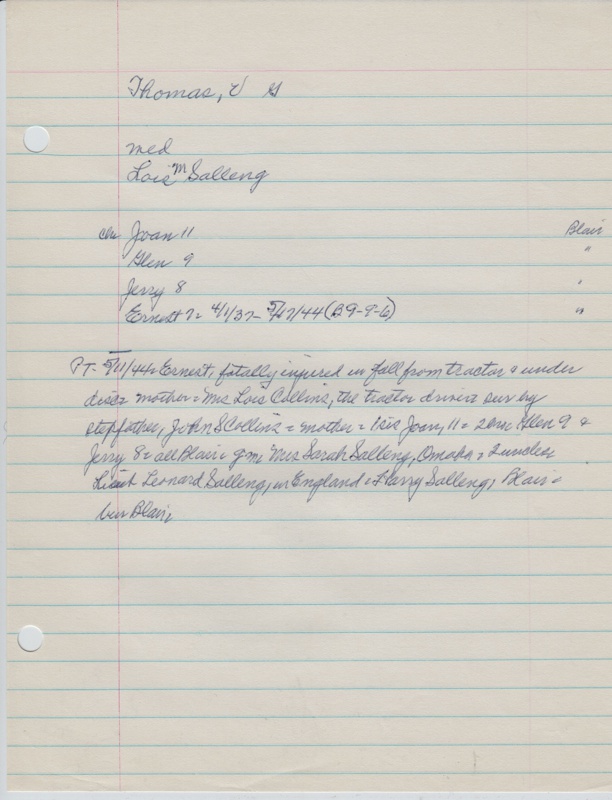 Thomas, V G
med
Lois M Salleng
chr Joan 11 Blair
Glen 9 "
Jerry 8 "
Ernest 7 = 4/1/37 - 5/17/44 (B 9-9-6) "
PT - 5/11/44 = Ernest, fatally injured in fall from tractor & under
disc = mother = Mrs Lois Collins, the tractor driver sur by
stepfather, John S Collins = mother = 1 sis Joan, 11 = 2 bro Glen 9 &
Jerry 8 = all Blair = gm Mrs Sarah Salleng, Omaha = 2 uncles
Lieut Leonard Salleng, in England = Harry Salleng, Blair =
bur Blair =